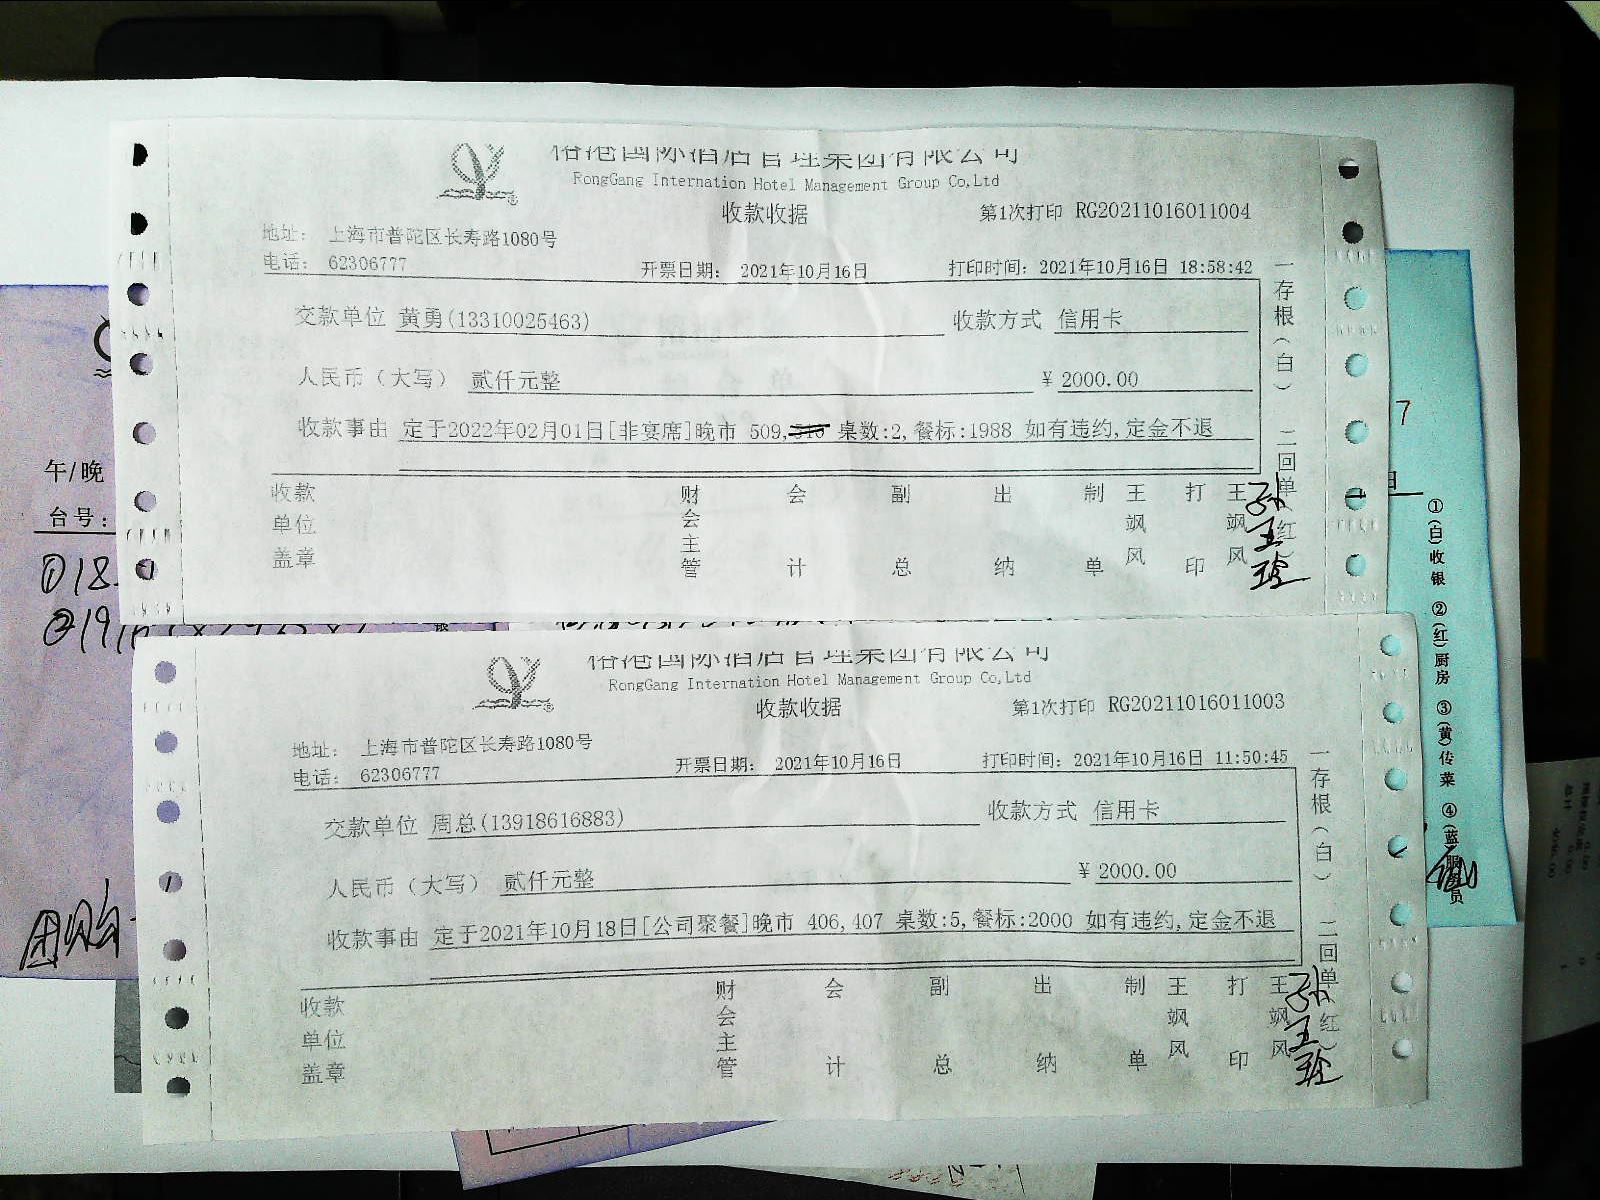 裕港国际酒店管理集团有限公司
RongGang Internation Hotel Management Group Co,Ltd
收款收据
第1次打印 RG20211016011004
地址： 上海市普陀区长寿路1080号
电话： 62306777
开票日期： 2021年10月16日
打印时间：2021年10月16日 18:58:42
交款单位 黄勇(13310025463)
收款方式 信用卡
人民币（大写） 贰仟元整
¥ 2000.00
收款事由 定于2022年02月01日[非宴席]晚市 509, 桌数:2,餐标:1988 如有违约,定金不退
一存根（白） 二回单（红）
收款单位盖章
财会主管
会计
副总
出纳
制单
王飒风
打印
王飒风
裕港国际酒店管理集团有限公司
RongGang Internation Hotel Management Group Co,Ltd
收款收据
第1次打印 RG20211016011003
地址： 上海市普陀区长寿路1080号
电话： 62306777
开票日期： 2021年10月16日
打印时间：2021年10月16日 11:50:45
交款单位 周总(13918616883)
收款方式 信用卡
人民币（大写） 贰仟元整
¥ 2000.00
收款事由 定于2021年10月18日[公司聚餐]晚市 406,407 桌数:5,餐标:2000 如有违约,定金不退
一存根（白） 二回单（红）
收款单位盖章
财会主管
会计
副总
出纳
制单
王飒风
打印
王飒风
午/晚
台号：
①18
②19
团购
7
①(白)收银 ②(红)厨房 ③(黄)传菜 ④(蓝)服务员